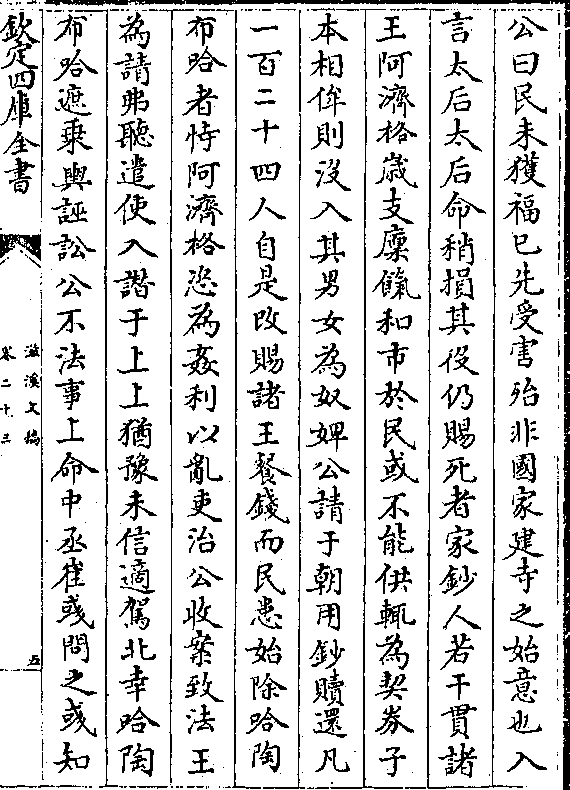 公曰民未獲福已先受害殆非國家建寺之始意也入
言太后太后命稍損其役仍賜死者家鈔人若干貫諸
王阿濟格歲支廩餼和市於民或不能供輒為契券子
本相侔則沒入其男女為奴婢公請于朝用鈔贖還凡
一百二十四人自是改賜諸王餐錢而民患始除哈陶
布哈者恃阿濟格恣為姦利以亂吏治公收案致法王
為請弗聽遣使入譖于上上猶豫未信適駕北幸哈陶
布哈遮乗輿誣訟公不法事上命中丞崔彧問之彧知
欽定四庫全書
滋溪文稿
卷二十三
五